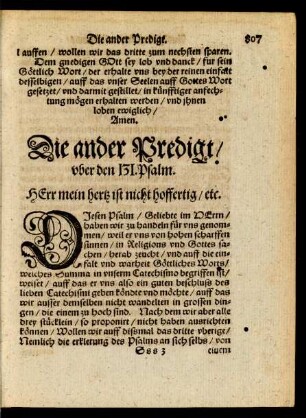 Die ander Predigt. 807
l auffen / wollen wir das dritte zum nechsten sparen.
Dem gnedigen GOtt sey lob vnd danck / fur sein
Göttlich Wort / der erhalte vns bey der reinen einfalt
desselbigen / auff das vnser Seelen auff Gottes Wort
gesetzet / vnd darmit gestillet / in künfftiger anfech-
tung mögen erhalten werden / vnd jhnen
loben ewiglich /
Amen.
Die ander Predigt /
vber den 131. Psalm.
HErr mein hertz ist nicht hoffertig / etc.
DIesen Psalm / Geliebte im HErrn /
haben wir zu handeln für vns genom-
men / weil er vns von hohen scharffen
sinnen / in Religions vnd Gottes sa-
chen / herab zeucht / vnd auff die ein-
falt vnd warheit Göttliches Worts /
welches Summa in vnserm Catechismo begriffen ist /
weiset / auff das er vns also ein guten beschluß des
lieben Catechismi geben köndte vnd möchte / auff das
wir ausser demselben nicht wandelten in grossen din-
gen / die einem zu hoch sind. Nach dem wir aber alle
drey stücklein / so proponirt / nicht haben ausrichten
können / Wollen wir auff dismal das dritte vbrige /
Nemlich die erkletung des Psalms an sich selbs / von
Sss 3 einem